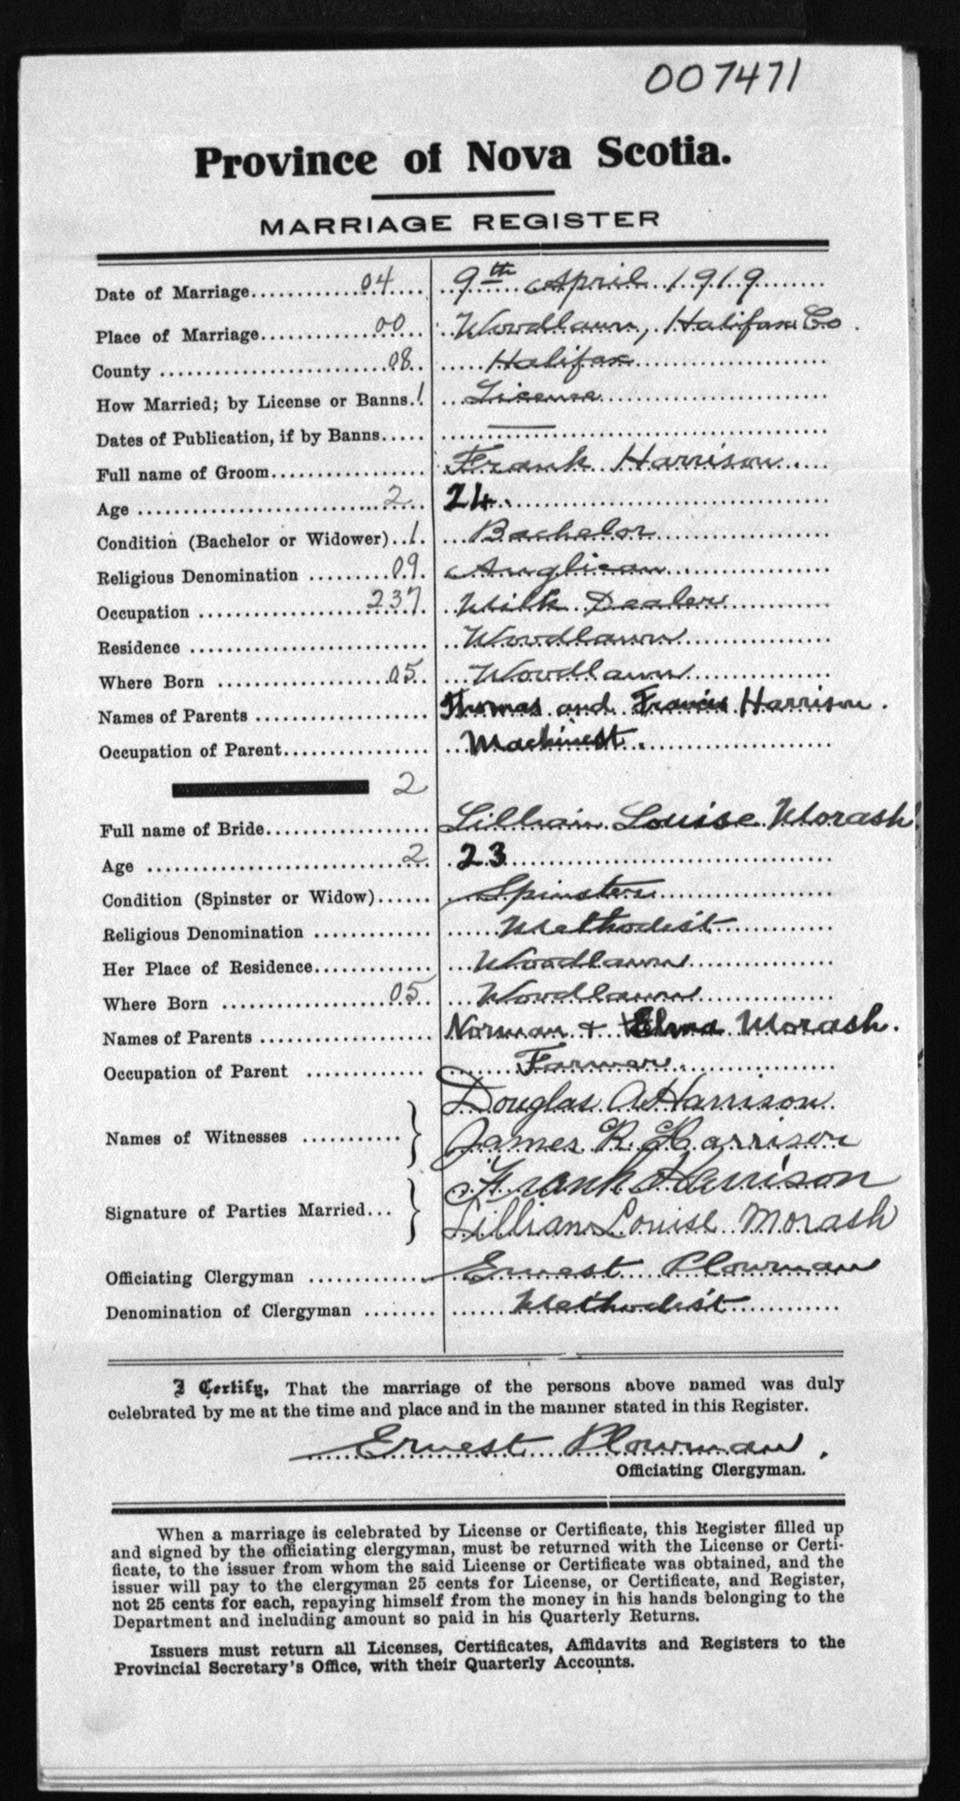 007471
Province of Nova Scotia.
MARRIAGE REGISTER
Date of Marriage 04 9th April 1919
Place of Marriage 00 Woodlawn, Halifax Co.
County 08 Halifax
How Married; by License or Banns. 1 License
Dates of Publication, if by Banns —
Full name of Groom Frank Harrison
Age 2 24.
Condition (Bachelor or Widower) 1 Bachelor
Religious Denomination 09 Anglican
Occupation 237 Milk Dealer
Residence Woodlawn
Where Born 05 Woodlawn
Names of Parents Thomas and Francis Harrison.
Occupation of Parent Machinist.
2
Full name of Bride Lillian Louise Morash
Age 2 23
Condition (Spinster or Widow) Spinster
Religious Denomination Methodist
Her Place of Residence Woodlawn
Where Born 05 Woodlawn
Names of Parents Norman + Elma Morash.
Occupation of Parent Farmer.
Douglas A Harrison
Names of Witnesses James R. Harrison
Frank Harrison
Signature of Parties Married Lillian Louise Morash
Officiating Clergyman Ernest Plowman
Denomination of Clergyman Methodist
I Certify, That the marriage of the persons above named was duly
celebrated by me at the time and place and in the manner stated in this Register.
Ernest Plowman.
Officiating Clergyman.
When a marriage is celebrated by License or Certificate, this Register filled up
and signed by the officiating clergyman, must be returned with the License or Certi-
ficate, to the issuer from whom the said License or Certificate was obtained, and the
issuer will pay to the clergyman 25 cents for License, or Certificate, and Register,
not 25 cents for each, repaying himself from the money in his hands belonging to the
Department and including amount so paid in his Quarterly Returns.
Issuers must return all Licenses, Certificates, Affidavits and Registers to the
Provincial Secretary's Office, with their Quarterly Accounts.